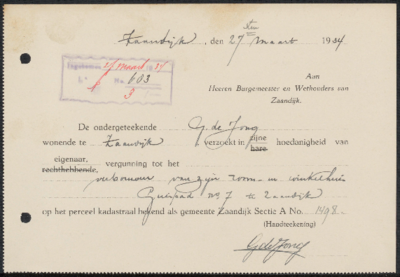 Zaandijk, den 27sten Maart 1934
Ingekomen 27 Maart '34
No. 603
3
Aan
Heeren Burgemeester en Wethouders van
Zaandijk.
De ondergeteekende G. de Jong
wonende te Zaandijk verzoekt in zijne hoedanigheid van
hare
eigenaar,
rechthebbende, vergunning tot het
verbouwen van zijn woon- en winkelhuis
Guispad no 7 te Zaandijk
op het perceel kadastraal bekend als gemeente Zaandijk Sectie A No. 1498.
(Handteekening)
G de Jong